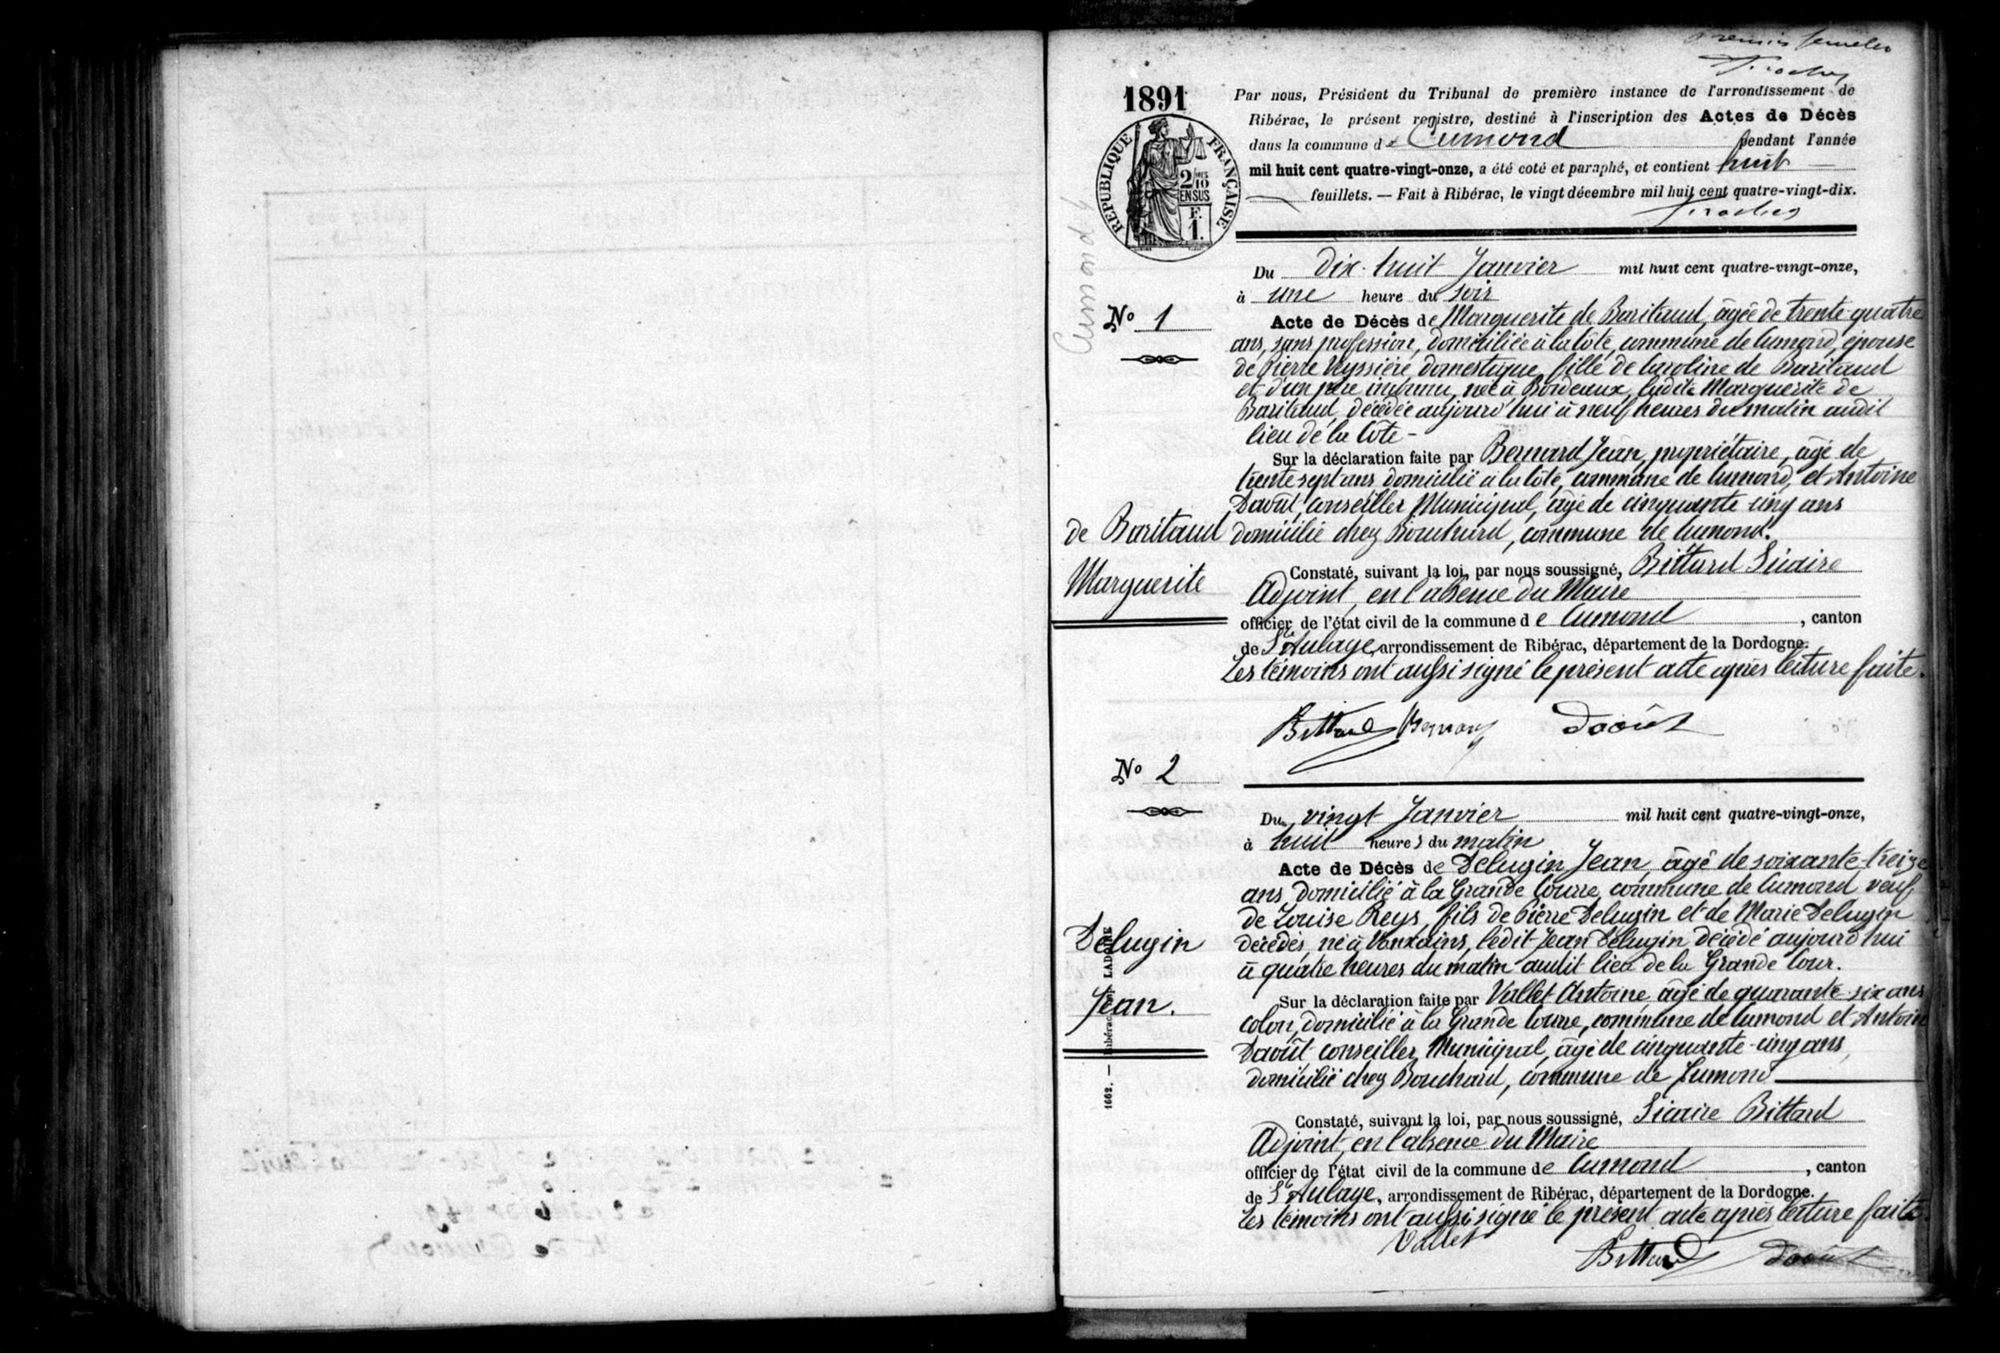 premier feuillet
1891
RÉPUBLIQUE FRANÇAISE
2/10 EN SUS
F. 1.
Cumond
Par nous, Président du Tribunal de première instance de l'arrondissement de
Ribérac, le présent registre, destiné à l'inscription des Actes de Décès
dans la commune de Cumond pendant l'année
mil huit cent quatre-vingt-onze, a été coté et paraphé, et contient huit
feuillets. — Fait à Ribérac, le vingt décembre mil huit cent quatre-vingt-dix.
Du dix-huit Janvier mil huit cent quatre-vingt-onze,
à une heure du soir
No 1
Acte de Décès de Marguerite de Baritaud, âgée de trente-quatre
ans, sans profession, domiciliée à la Côte, commune de Cumond, épouse
de Pierre Veyssière, domestique, fille de Caroline de Baritaud
et d'un père inconnu, née à Bordeaux, ladite Marguerite de
Baritaud, décédée aujourd'hui à neuf heures du matin audit
lieu de la Côte -
Sur la déclaration faite par Bernard Jean, propriétaire, âgé de
trente sept ans domicilié à la Côte, commune de Cumond, et Antoine
Daoût, conseiller Municipal, âgé de cinquante cinq ans
domicilié chez Bouchard, commune de Cumond.
de Baritaud
Marguerite
Constaté, suivant la loi, par nous soussigné, Bittard Sicaire
Adjoint, en l'absence du Maire
officier de l'état civil de la commune de Cumond, canton
de Ste Aulaye, arrondissement de Ribérac, département de la Dordogne.
Les témoins ont aussi signé le présent acte après lecture faite.
Bittard Bernard Daoût
No 2
Du vingt Janvier mil huit cent quatre-vingt-onze,
à huit heures du matin
Acte de Décès de Delugin Jean, âgé de soixante-treize
ans, domicilié à la Grande Courre, commune de Cumond, veuf
de Louise Reys, fils de Pierre Delugin et de Marie Delugin
décédés, né à Vanxains, ledit Jean Delugin décédé aujourd'hui
à quatre heures du matin audit lieu de la Grande Cour.
Delugin
Jean.
Sur la déclaration faite par Vallet Antoine âgé de quarante-six ans
colon, domicilié à la Grande Courre, commune de Cumond et Antoine
Daoût conseiller Municipal, âgé de cinquante-cinq ans,
domicilié chez Bouchard, commune de Cumond
1662. — Ribérac, LADOIRE
Constaté, suivant la loi, par nous soussigné, Sicaire Bittard
Adjoint, en l'absence du Maire
officier de l'état civil de la commune de Cumond, canton
de Ste Aulaye, arrondissement de Ribérac, département de la Dordogne.
Les témoins ont aussi signé le présent acte après lecture faite.
Vallet
Bittard Daoût